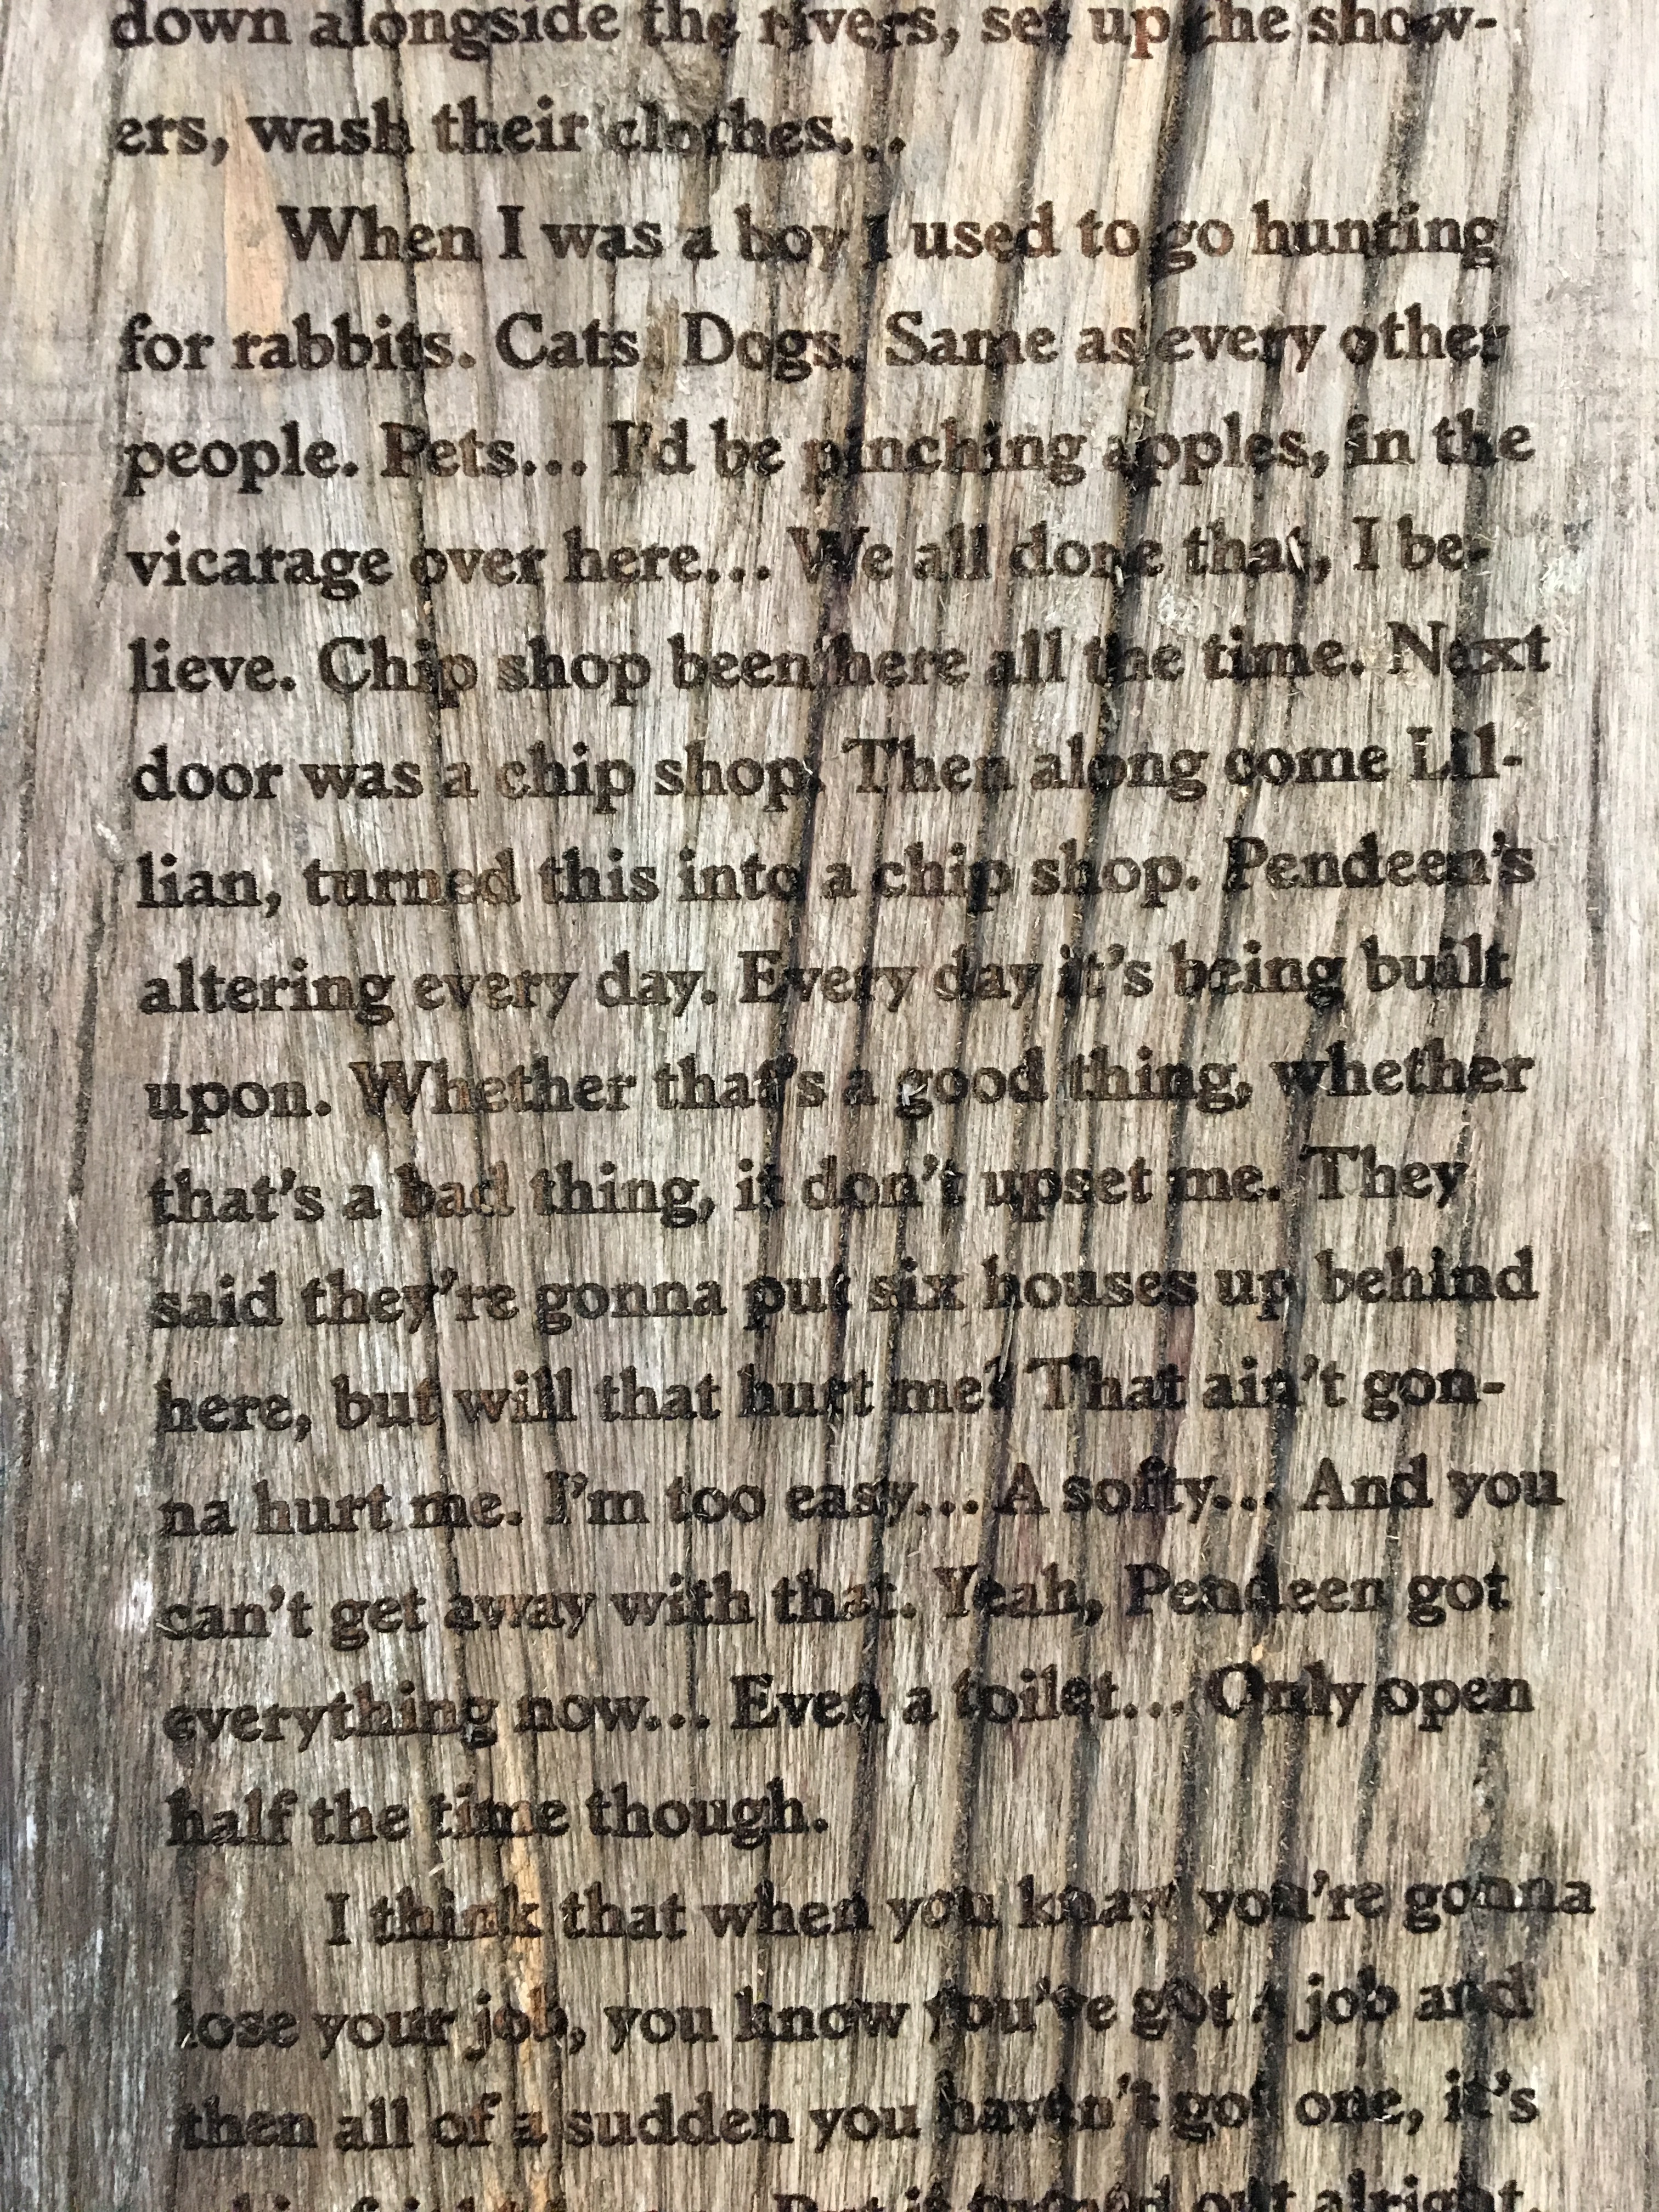 down alongside the rivers, set up the show-
ers, wash their clothes...
When I was a boy I used to go hunting
for rabbits. Cats. Dogs. Same as every other
people. Pets... I'd be pinching apples, in the
vicarage over here... We all done that, I be-
lieve. Chip shop been here all the time. Next
door was a chip shop. Then along come Lil-
lian, turned this into a chip shop. Pendeen's
altering every day. Every day it's being built
upon. Whether that's a good thing, whether
that's a bad thing, it don't upset me. They
said they're gonna put six houses up behind
here, but will that hurt me? That ain't gon-
na hurt me. I'm too easy... A softy... And you
can't get away with that. Yeah, Pendeen got
everything now... Even a toilet... Only open
half the time though.
I think that when you know you're gonna
lose your job, you know you've got a job and
then all of a sudden you haven't got one, it's
But it turned out alright.